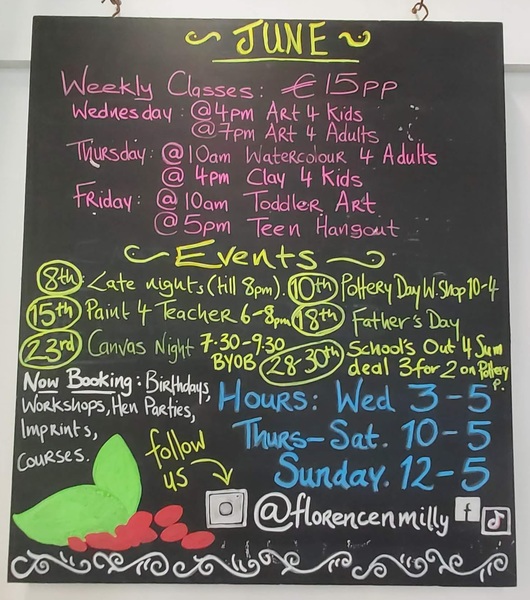 JUNE
Weekly Classes: €15pp
Wednesday: @4pm Art 4 Kids
@7pm Art 4 Adults
Thursday: @10am Watercolour 4 Adults
@ 4pm Clay 4 Kids
Friday: @10am Toddler Art
@5pm Teen Hangout
Events
8th: Late nights (till 8pm). 10th Pottery Day W.Shop 10-4
15th Paint 4 Teacher 6-8pm 18th Father's Day
23rd Canvas Night 7.30-9.30 BYOB
28-30th School's Out 4 Sum
deal 3 for 2 on Pottery P.
Now Booking: Birthdays,
Workshops, Hen Parties,
Imprints,
Courses.
Hours: Wed 3-5
Thurs-Sat. 10-5
Sunday. 12-5
follow
us
@florencenmilly f